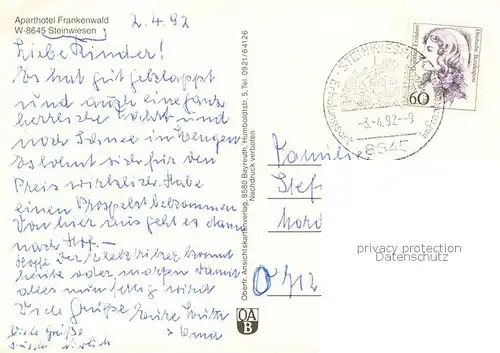 Aparthotel Frankenwald
W-8645 Steinwiesen
2.4.92
Liebe Kinder!
Es hat gut geklappt
und auch eine ganz
herrliche Fahrt und
noch Schnee in Mengen
Es lohnt sich für den
Preis wirklich. Habe
einen Prospekt bekommen
Von hier aus geht es dann
nach Hof.—
Hoffe der Elektriker kommt
heute oder morgen damit
alles fertig wird
Viele Grüße Eure Mutti
+ Oma
Viele Grüße
Oberfr. Ansichtskartenverlag, 8580 Bayreuth, Humboldtstr. 5, Tel. 0921/64126
Nachdruck verboten
OA
B
STEINWIESEN
-3.-4.92-9
8645
60
Deutsche Bundespost
Familie
Stef
Nord
O 412
privacy protection
Datenschutz